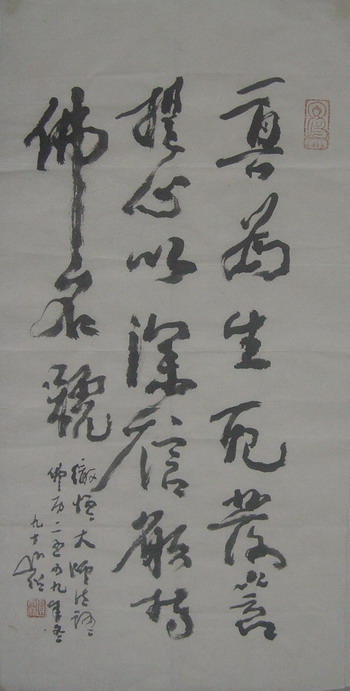 真為生死發菩
提心以深信願持
佛名號
徹悟大師法語
佛历二五四九年冬
九十